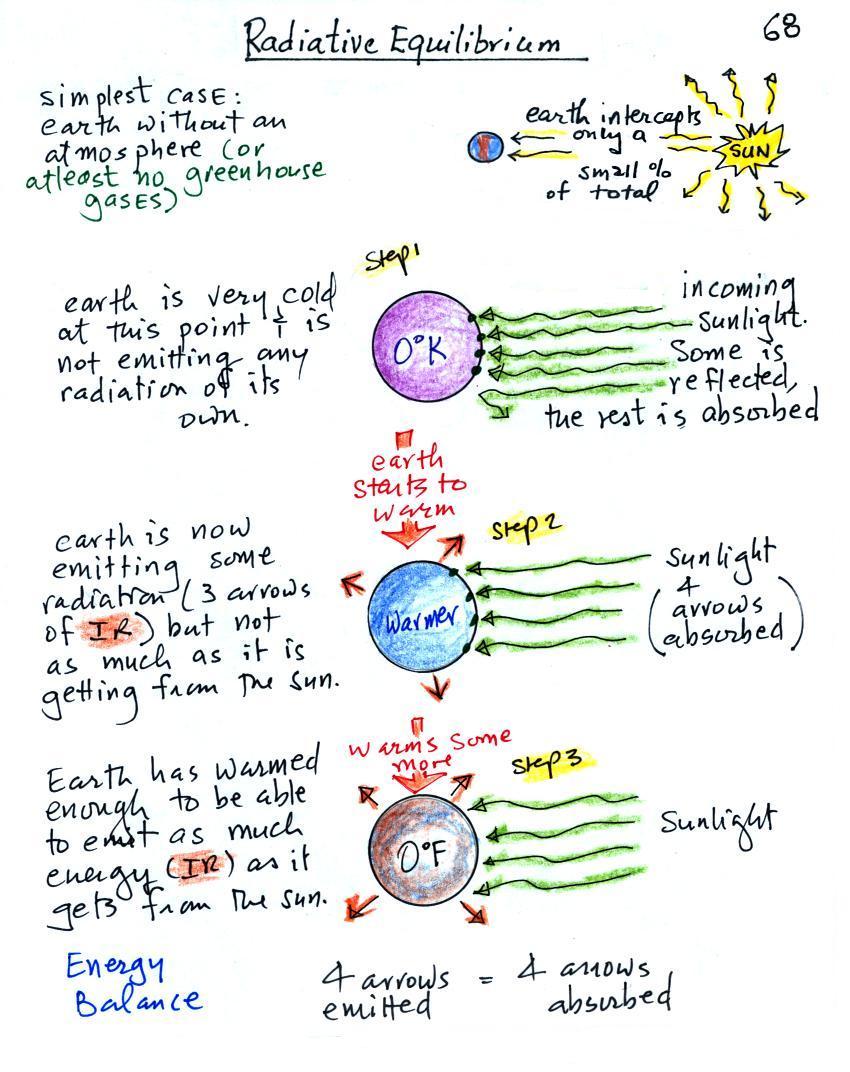 Radiative Equilibrium
68
simplest CASE:
earth without an
atmosphere (or
atleast no greenhouse
gases)
earth intercepts
only a
small %
of total
SUN
Step 1
earth is very cold
at this point & is
not emitting any
radiation of its
own.
0°K
incoming
sunlight.
Some is
reflected,
the rest is absorbed
earth
starts to
warm
Step 2
earth is now
emitting some
radiation (3 arrows
of IR) but not
as much as it is
getting from the sun.
Warmer
Sunlight
(4
arrows
absorbed)
warms some
more
Step 3
Earth has warmed
enough to be able
to emit as much
energy (IR) as it
gets from the sun.
0°F
Sunlight
Energy
Balance
4 arrows = 4 arrows
emitted absorbed